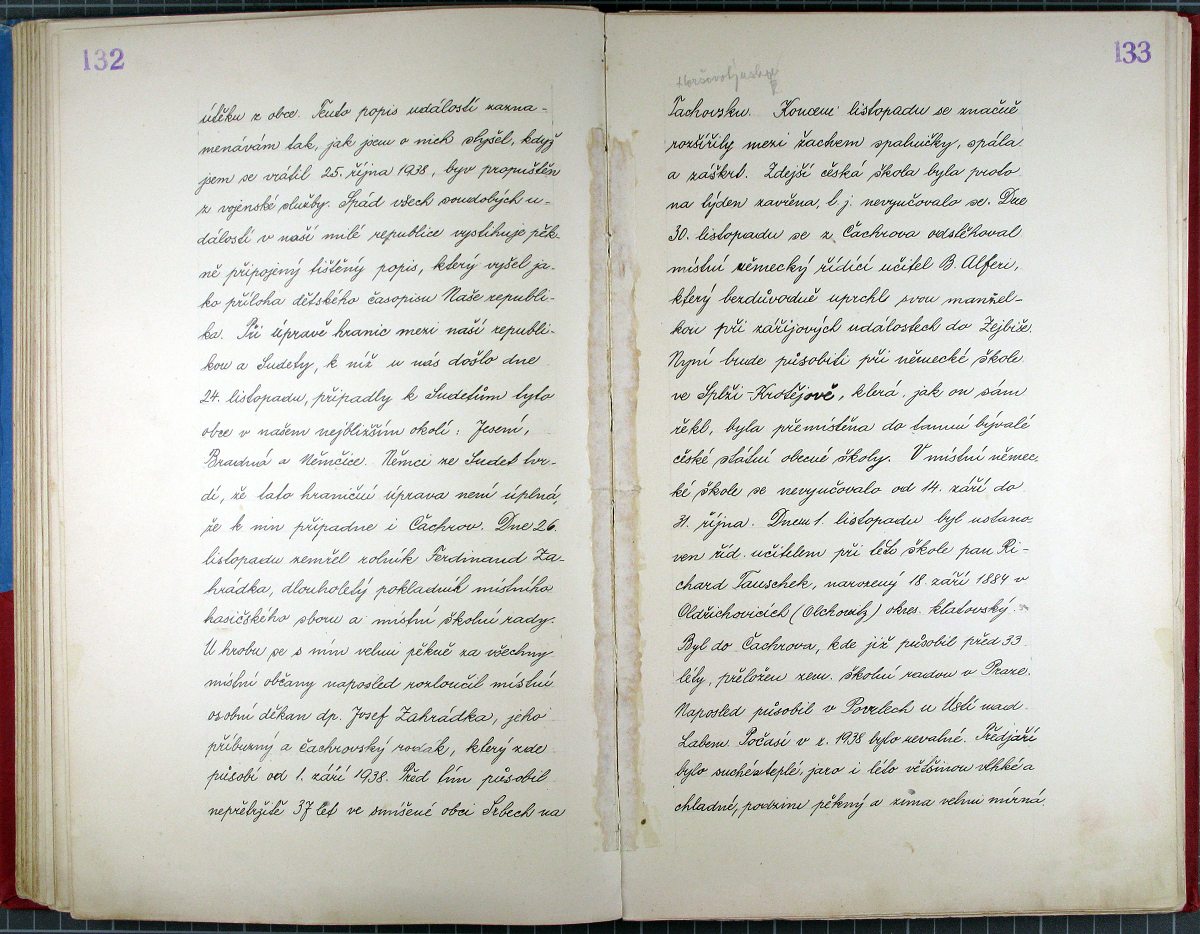 132
útěku z obce. Tento popis událostí zazna-
menávám tak, jak jsem o nich slyšel, když
jsem se vrátil 25. října 1938, byv propuštěn
z vojenské služby. Spád všech soudobých u-
dálostí v naší milé republice vystihuje pěk-
ně připojený tištěný popis, který vyšel ja-
ko příloha dětského časopisu Naše republi-
ka. Při úpravě hranic mezi naší republi-
kou a Sudety, k níž u nás došlo dne
24. listopadu, připadly k Sudetům tyto
obce v našem nejbližším okolí: Jesení,
Bradná a Němčice. Němci ze Sudet tvr-
dí, že tato hraniční úprava není úplná,
že k nim připadne i Čachrov. Dne 26.
listopadu zemřel rolník Ferdinand Za-
hrádka, dlouholetý pokladník místního
hasičského sboru a místní školní rady.
U hrobu se s ním velmi pěkně za všechny
místní občany naposled rozloučil místní
osobní děkan dp. Josef Zahrádka, jeho
příbuzný a čachrovský rodák, který zde
působí od 1. září 1938. Před tím působil
nepřetržitě 37 let ve smíšené obci Srbech na
133
Horšovotýnsku
Tachovsku. Koncem listopadu se značně
rozšířily mezi žactvem spalničky, spála
a záškrt. Zdejší česká škola byla proto
na týden zavřena, t. j. nevyučovalo se. Dne
30. listopadu se z Čachrova odstěhoval
místní německý řídící učitel B. Alferi,
který bezdůvodně uprchl svou manžel-
kou při zářijových událostech do Zejbiše.
Nyní bude působiti při německé škole
ve Splži-Krotějově, která, jak on sám
řekl, byla přemístěna do tamní bývalé
české státní obecné školy. V místní němec-
ké škole se nevyučovalo od 14. září do
31. října. Dnem 1. listopadu byl ustano-
ven říd. učitelem při této škole pan Ri-
chard Tauschek, narozený 18. září 1884 v
Oldřichovicích (Olchowitz) okres. klatovský.
Byl do Čachrova, kde již působil před 33
léty, přeložen zem. školní radou v Praze.
Naposled působil v Povrlech u Ústí nad
Labem. Počasí v r. 1938 bylo nevalné. Předjaří
bylo suché a teplé, jaro i léto většinou vlhké a
chladné, podzim pěkný a zima velmi mírná.